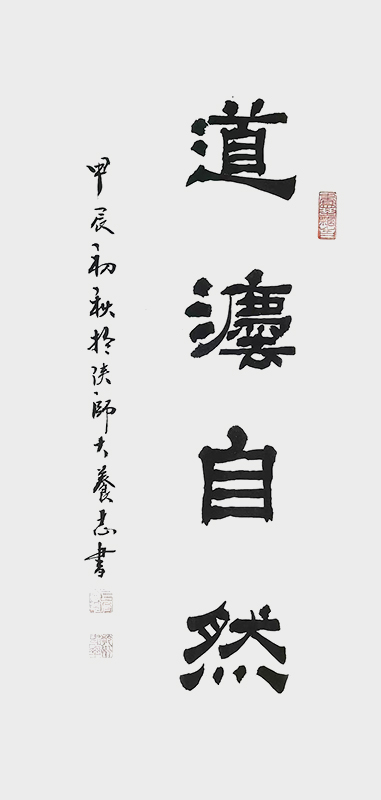 道灋自然
甲辰初秋於陕師大養志書